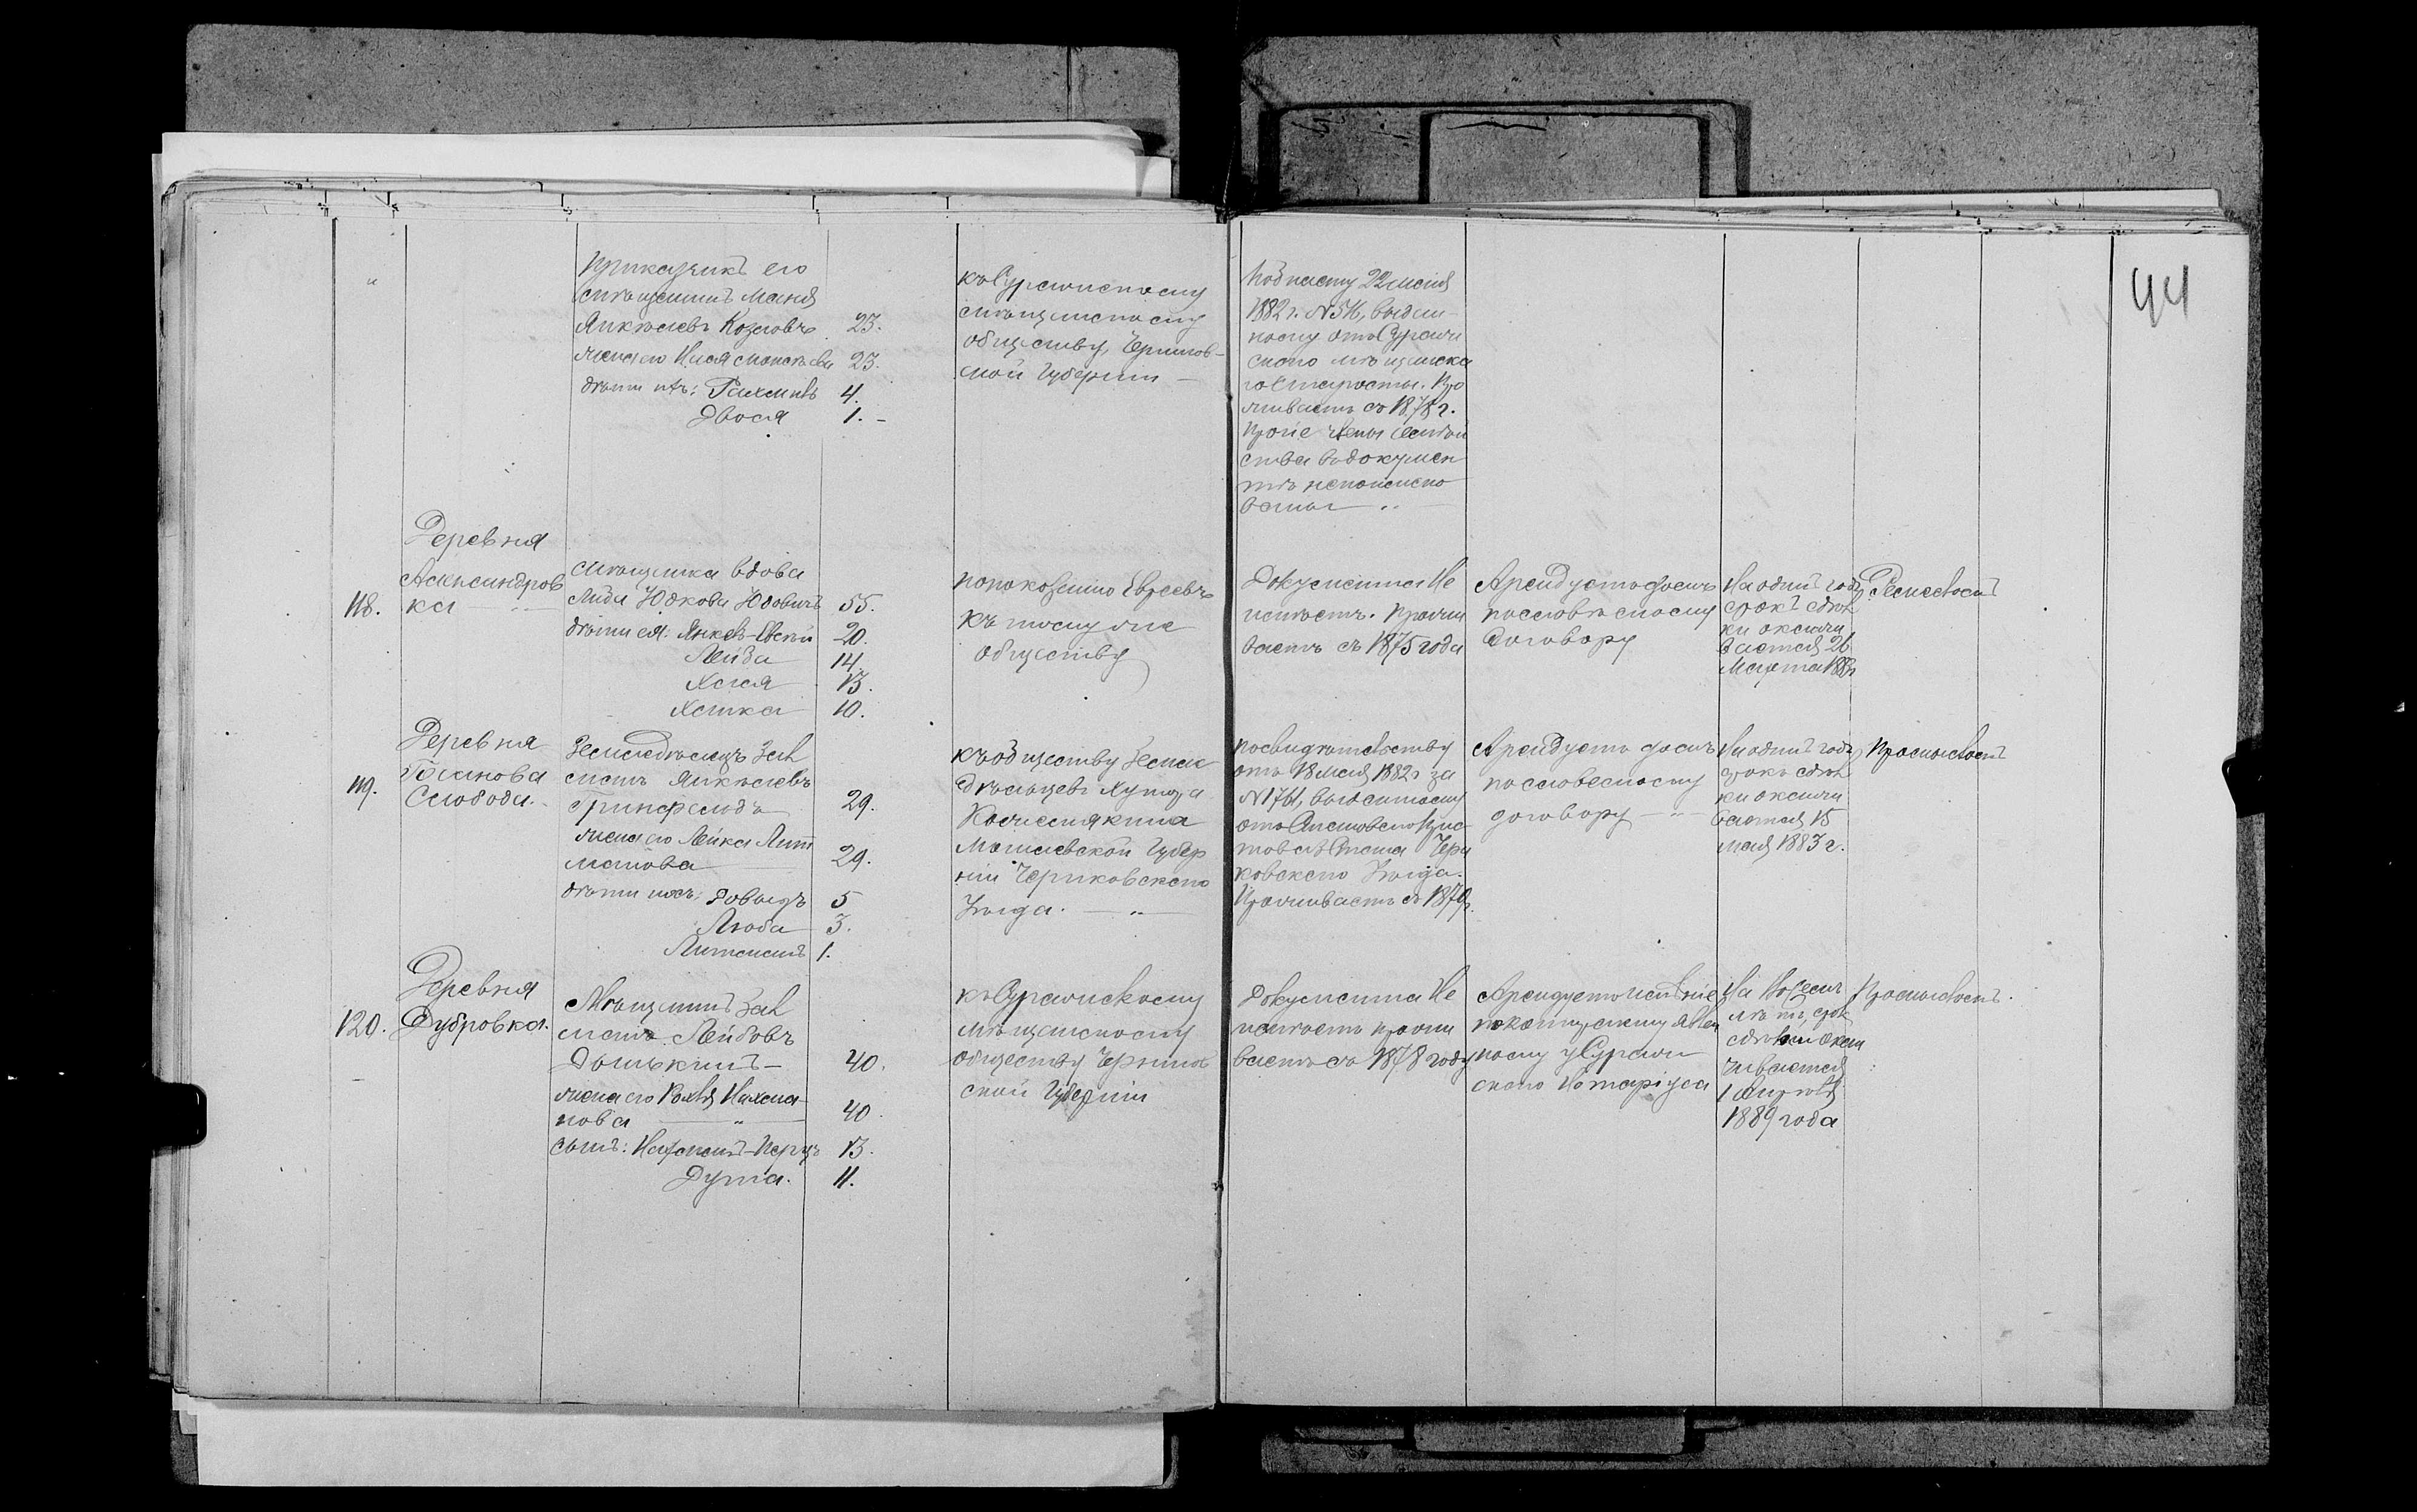 44
"
Прикащикъ его
мѣщанинъ Манѣ
Янкелевъ Козловъ 23.
жена его Хася 23.
дѣти ихъ: Рахмиль 4.
Двося 1. -
къ Суражскому
мѣщанскому
обществу, Чернигов-
ской Губерніи -
По билету 22 мая
1882 г. №516, выдан-
ному отъ Суражи
скаго мѣщанска
го Старосты. Про
живаетъ съ 1878 г.
Прочіе члены семѣй
ства въ докумен
тѣ непоимено
ваны
118.
Деревня
Александров
ка
мѣщанка вдова
Лида Юдкова Юдовичъ 55.
дѣти ея: Янкель-Евсѣй 20.
Лейба 14.
Хася 13.
Ханка 10.
по показанію Евреевъ
къ тому же
обществу
Документа Не
имѣетъ. Прожи
ваетъ съ 1875 года
Арендуетъ домъ
по словѣсному
договору
На одинъ годъ
срокъ сдѣл
ки оканчи
вается 26
Марта 1883 г.
Ремесломъ
119.
Деревня
Голанова
Слобода.
Земледѣлецъ Зал
манъ Янкелевъ
Гринфельдъ 29.
жена его Лейка Лит
манова 29.
дѣти ихъ: Довыдъ 5
Люба 3.
Литманъ 1.
къ обществу Земле
дѣльцевъ Хутора
Могилевской Губер
ніи Чериковскаго
Уѣзда. - " -
По свидѣтельству
отъ 18 мая 1882 г за
№1761, выданному
отъ
Стана Чери
ковскаго Уѣзда.
Проживаетъ съ 1879 г.
Арендуетъ домъ
по словесному
договору - " -
На одинъ годъ
срокъ сдѣл
ки оканчи
вается 15
мая 1883 г.
Промысломъ
120.
Деревня
Дубровка.
Мѣщанинъ Зал
манъ Лейбовъ
Дынькинъ - 40.
жена его Рохля Нахма-
нова - " - 40.
сынъ: Нахманъ-Перецъ 13.
Дуня. 11.
къ Суражскому
мѣщанскому
обществу Чернигов
ской Губерніи
Документа Не
имѣетъ прожи
ваетъ съ 1878 году
Арендуетъ имѣніе
по контракту явлен
ному у Суражи
скаго Нотаріуса
На Но семь
лѣтъ, срок
сдѣлки окан
чивается
1 Апрѣля
1889 года
Промысломъ.